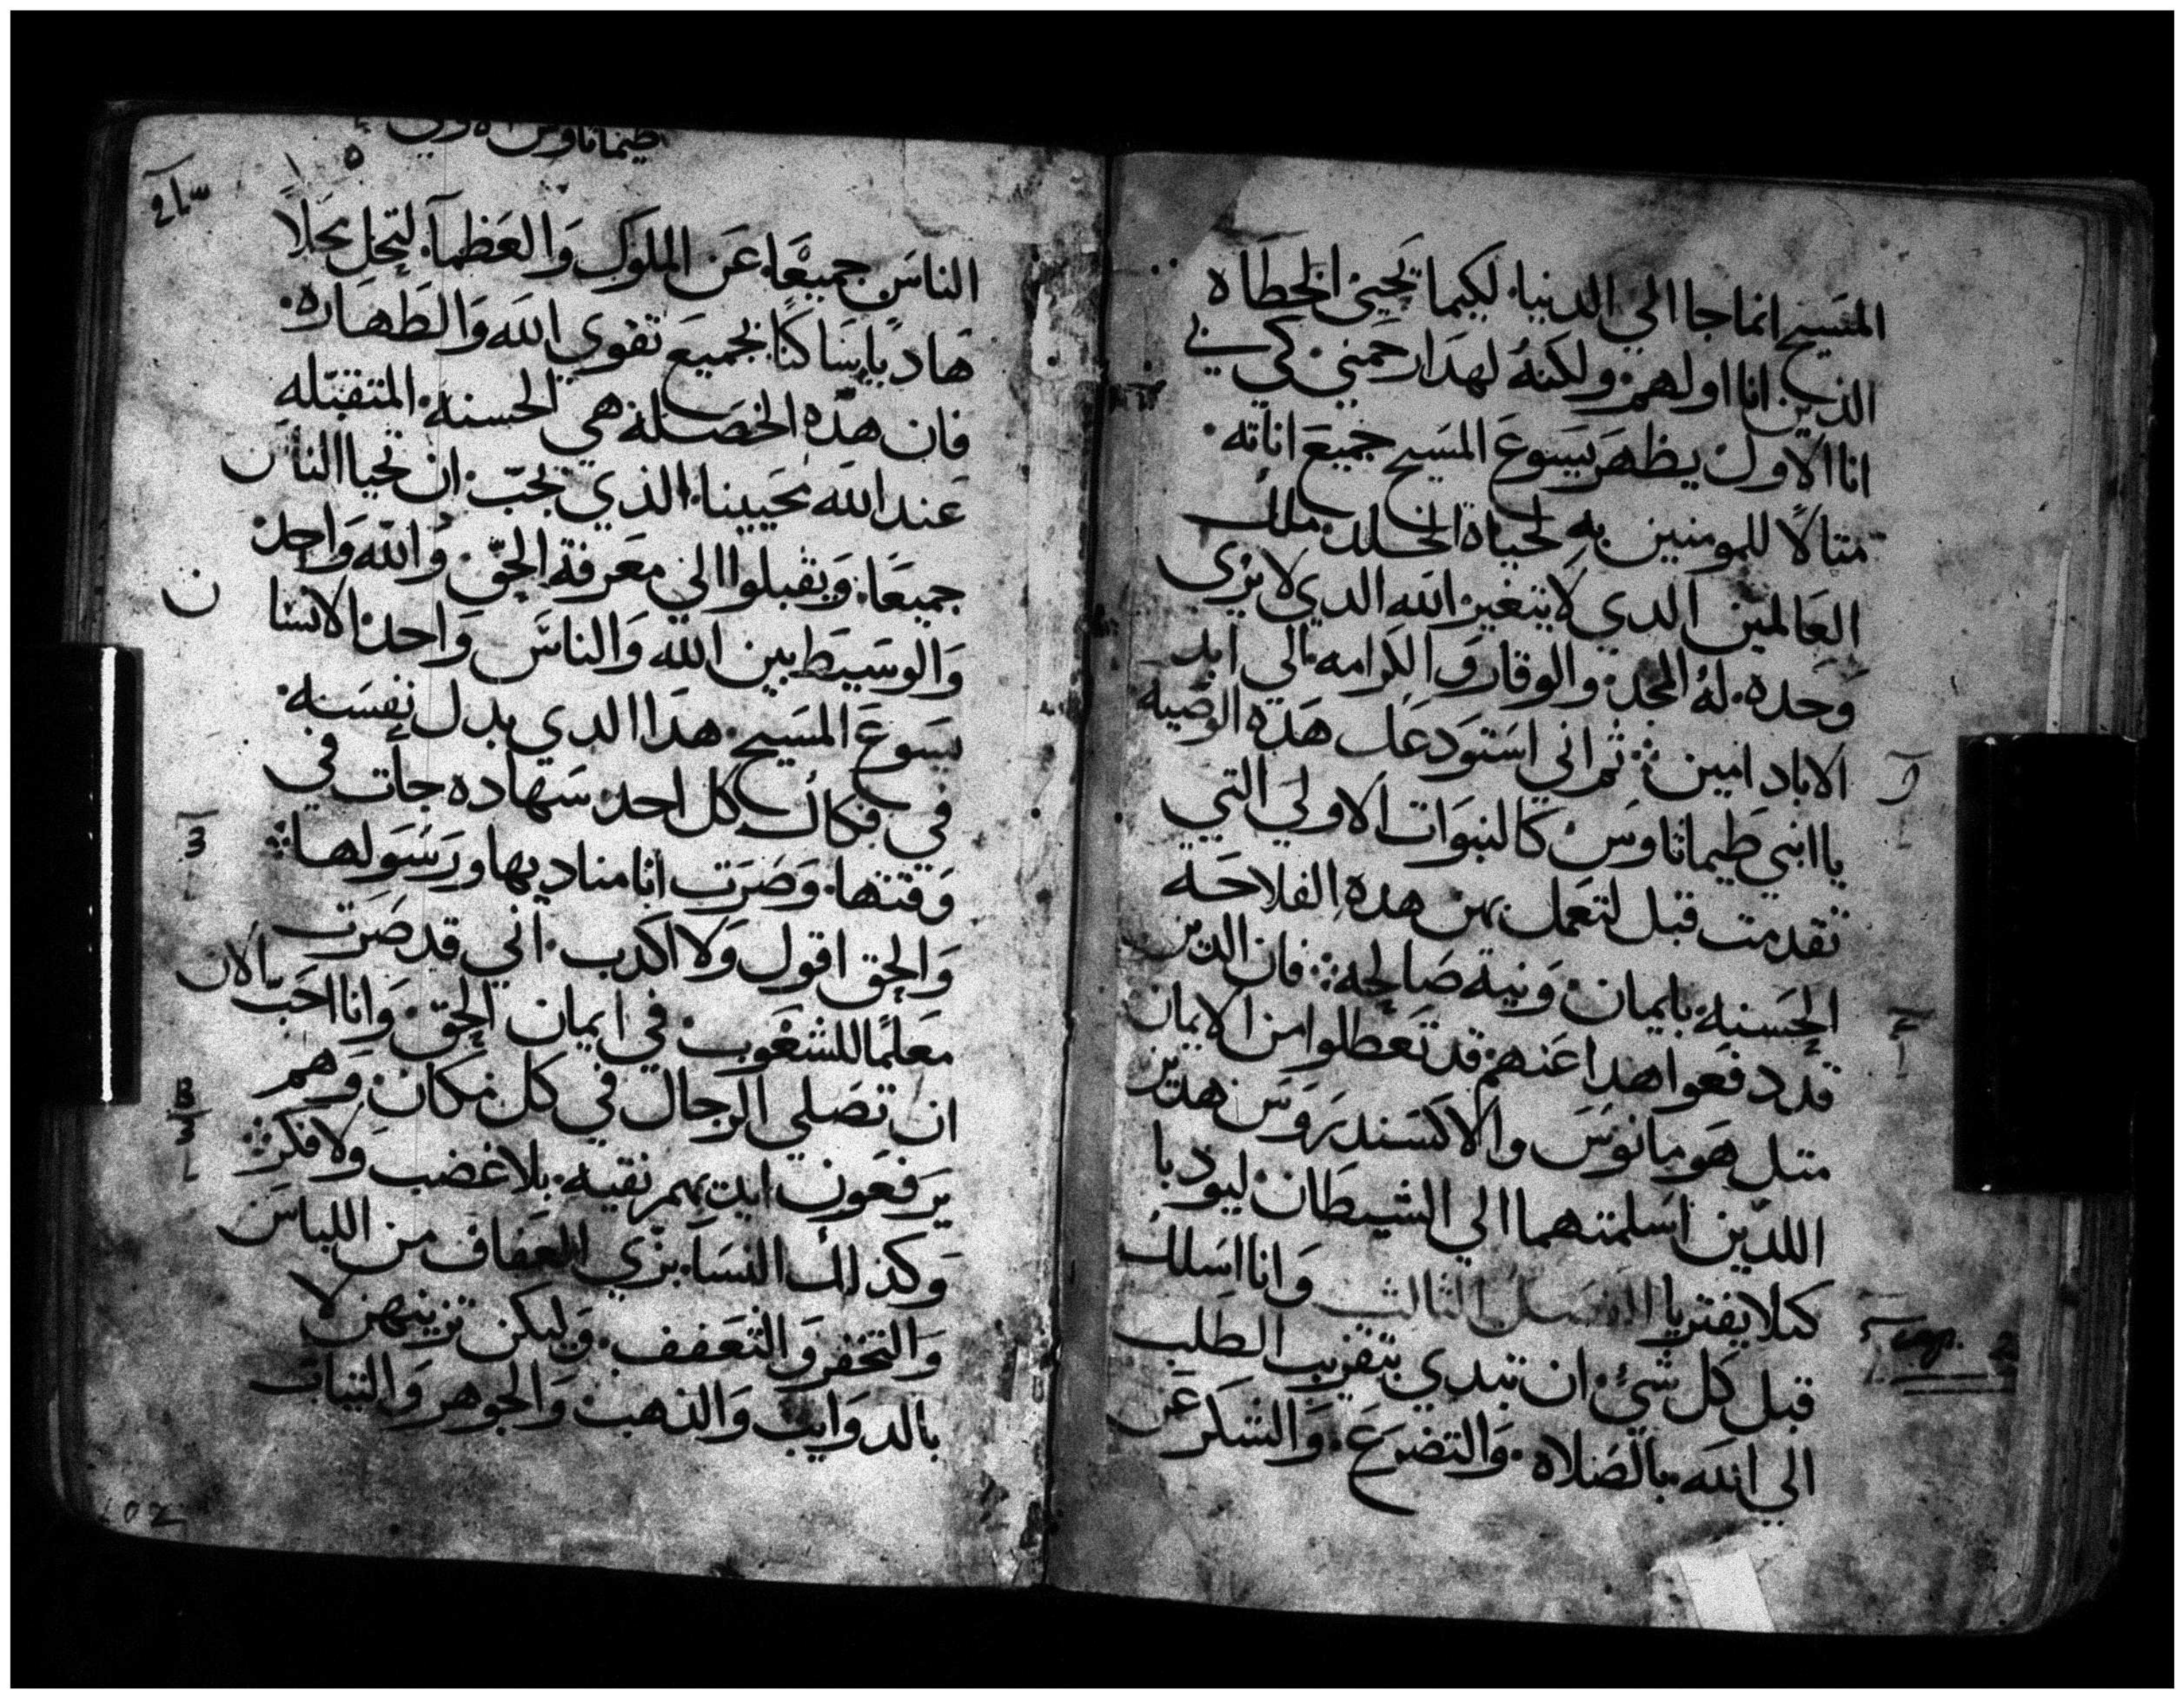 المسيح انما جا الي الدنيا لكيما تحيي الخطاه
الذين انا اولهم ولكنه لهدا رحمني كي في
انا الاول يظهر يسوع المسيح جميع اناته
متالا للمومنين به لحياة الخلد ملك
العالمين الدي لا يتغير الله الدي لا يرى
وحده له المجد والوقار والكرامه الي ابد
الاباد امين ثم اني استودعك هده الوصيه
يا ابني طيماتاوس كالنبوات الاولي التي
تقدمت قبل لتعمل بهن هده الفلاحه
الحسنه بايمان ونية صالحه فان الدين
قد دفعوا هدا عنهم قد تعطلوا من الايمان
متل هومانوس والاكسندروس هدين
اللدين اسلمتهما الي الشيطان ليودبا
كيلا يفتريا الفصل الثالث وانا اسلك
cap. 2
قبل كل شيء ان تبدي بتقريب الطلب
الي الله بالصلاه والتضرع والشكر عن
طيماتاوس الاولي
الناس جميعا عن الملوك والعظمآ لتحل محلا
هاديا ساكنا بجميع تقوي الله والطهاره
فان هده الخصلة هي الحسنه المتقبله
عند الله محيينا الذي يحب ان تحيا الناس
جميعا ويقبلوا الي معرفة الحق والله واحد
والوسيط بين الله والناس واحد الانسان
يسوع المسيح هدا الدي بدل نفسه
في فكاك كل احد سهاده جات في
وقتها وصرت انا مناديها ورسولها
والحق اقول ولا اكدب اني قد صرت
معلما للشعوب في ايمان الحق وانا احب الان
ان تصلي الرجال في كل مكان وهم
يرفعون ايديهم نقيه بلا غضب ولا فكر
وكذلك النسا بزي العفاف من اللباس
والتخفر والتعفف وليكن تزينهن لا
بالدوايب والذهب والجوهر والثياب
202